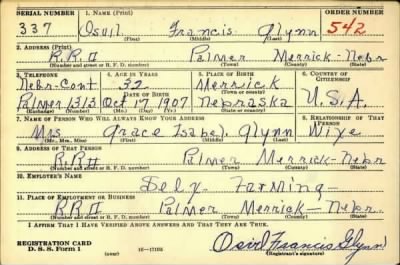 SERIAL NUMBER 1. NAME (Print) ORDER NUMBER
337 Osvil Francis Glynn 542
(First) (Middle) (Last)
2. ADDRESS (Print)
R.R.II Palmer Merrick-Nebr
(Number and street or R. F. D. number) (Town) (County) (State)
3. TELEPHONE 4. AGE IN YEARS 5. PLACE OF BIRTH 6. COUNTRY OF CITIZENSHIP
Nebr-Cont 32 Merrick
(Town or county)
Palmer 1313 Oct 17 1907 Nebraska U.S.A.
(Exchange) (Number) (Mo.) (Day) (Yr.) (State or country)
7. NAME OF PERSON WHO WILL ALWAYS KNOW YOUR ADDRESS 8. RELATIONSHIP OF THAT PERSON
Mrs Grace Isabel Glynn Wife
(Mr., Mrs., Miss) (First) (Middle) (Last)
9. ADDRESS OF THAT PERSON
R.R.II Palmer Merrick-Nebr
(Number and street or R. F. D. number) (Town) (County) (State)
10. EMPLOYER'S NAME
Self Farming-
11. PLACE OF EMPLOYMENT OR BUSINESS
R.R.II Palmer Merrick-Nebr.
(Number and street or R. F. D. number) (Town) (County) (State)
I AFFIRM THAT I HAVE VERIFIED ABOVE ANSWERS AND THAT THEY ARE TRUE.
REGISTRATION CARD
D. S. S. Form 1
(over) Osvil Francis Glynn
(Registrant's signature)